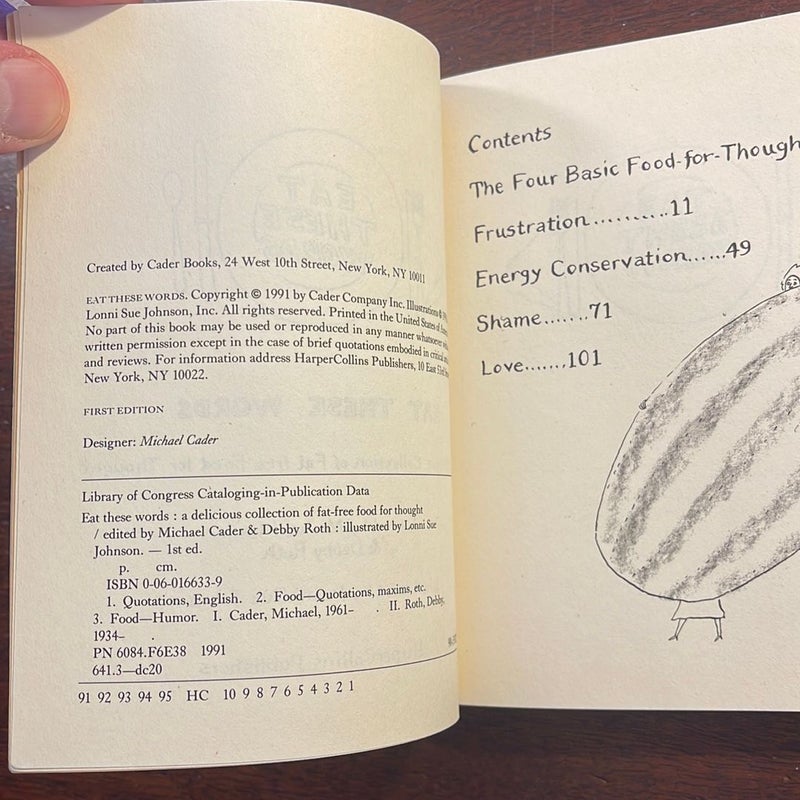 Created by Cader Books, 24 West 10th Street, New York, NY 10011
EAT THESE WORDS. Copyright © 1991 by Cader Company Inc. Illustrations
Lonni Sue Johnson, Inc. All rights reserved. Printed in the United States of
No part of this book may be used or reproduced in any manner whatsoever
written permission except in the case of brief quotations embodied in critical
and reviews. For information address HarperCollins Publishers, 10 East
New York, NY 10022.
FIRST EDITION
Designer: Michael Cader
Library of Congress Cataloging-in-Publication Data
Eat these words : a delicious collection of fat-free food for thought
/ edited by Michael Cader & Debby Roth : illustrated by Lonni Sue
Johnson. — 1st ed.
p. cm.
ISBN 0-06-016633-9
1. Quotations, English. 2. Food—Quotations, maxims, etc.
3. Food—Humor. I. Cader, Michael, 1961– . II. Roth, Debby,
1934– .
PN 6084.F6E38 1991
641.3—dc20
91 92 93 94 95 HC 10 9 8 7 6 5 4 3 2 1
Contents
The Four Basic Food-for-Though
Frustration..........11
Energy Conservation......49
Shame.......71
Love.......101